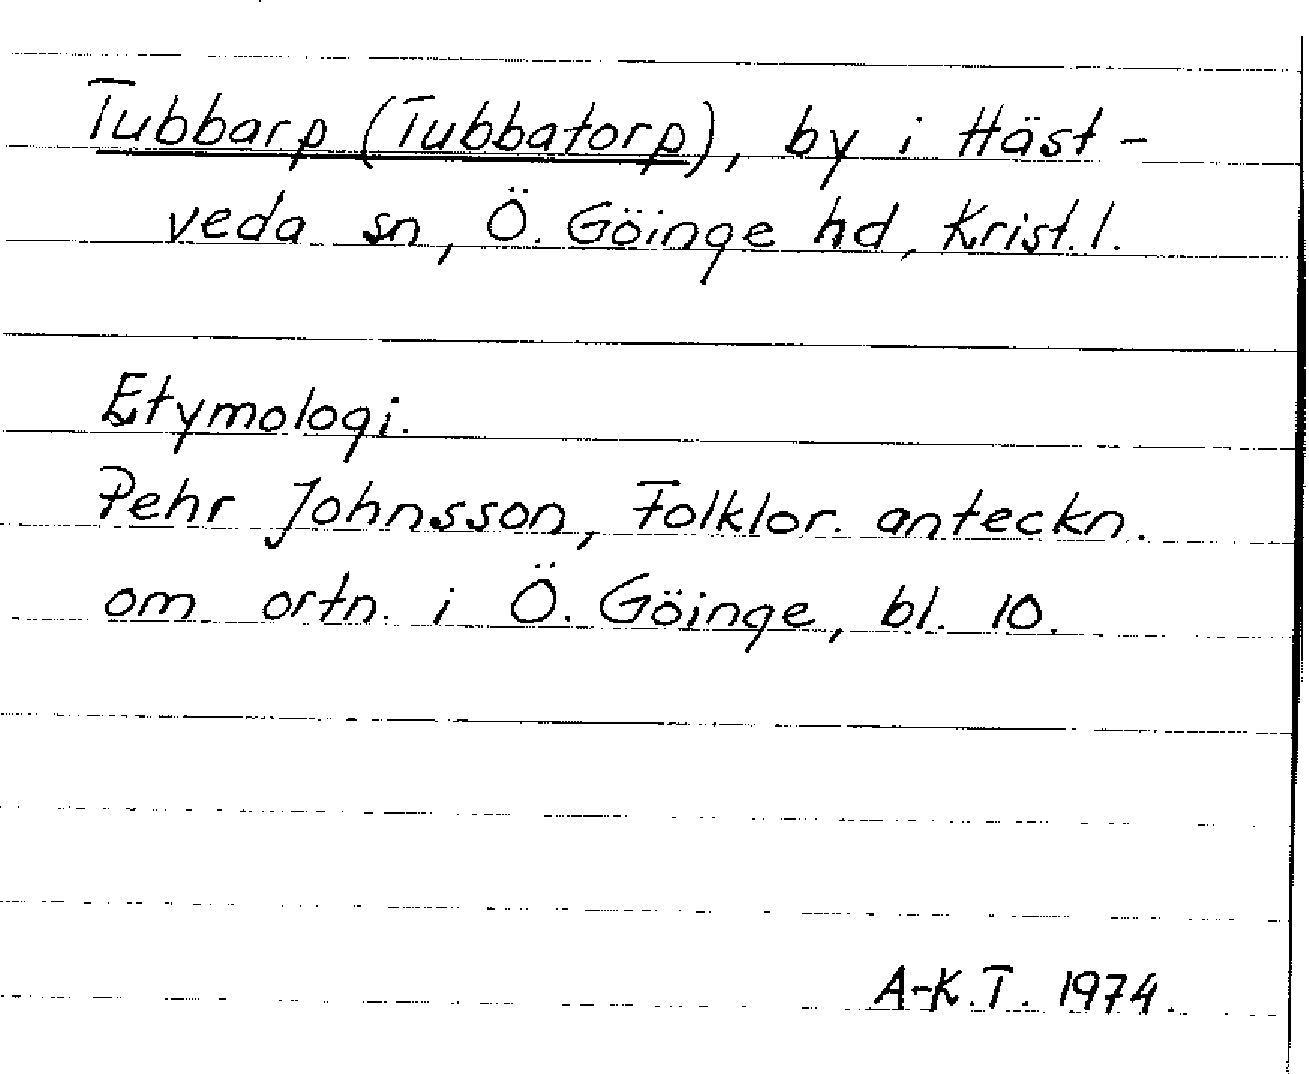 Tubbarp (Tubbatorp), by i Häst-
veda sn, Ö. Göinge hd, Krist. l.
Etymologi.
Pehr Johnsson, Folklor. anteckn.
om ortn. i Ö. Göinge, bl. 10.
A-K.T. 1974.